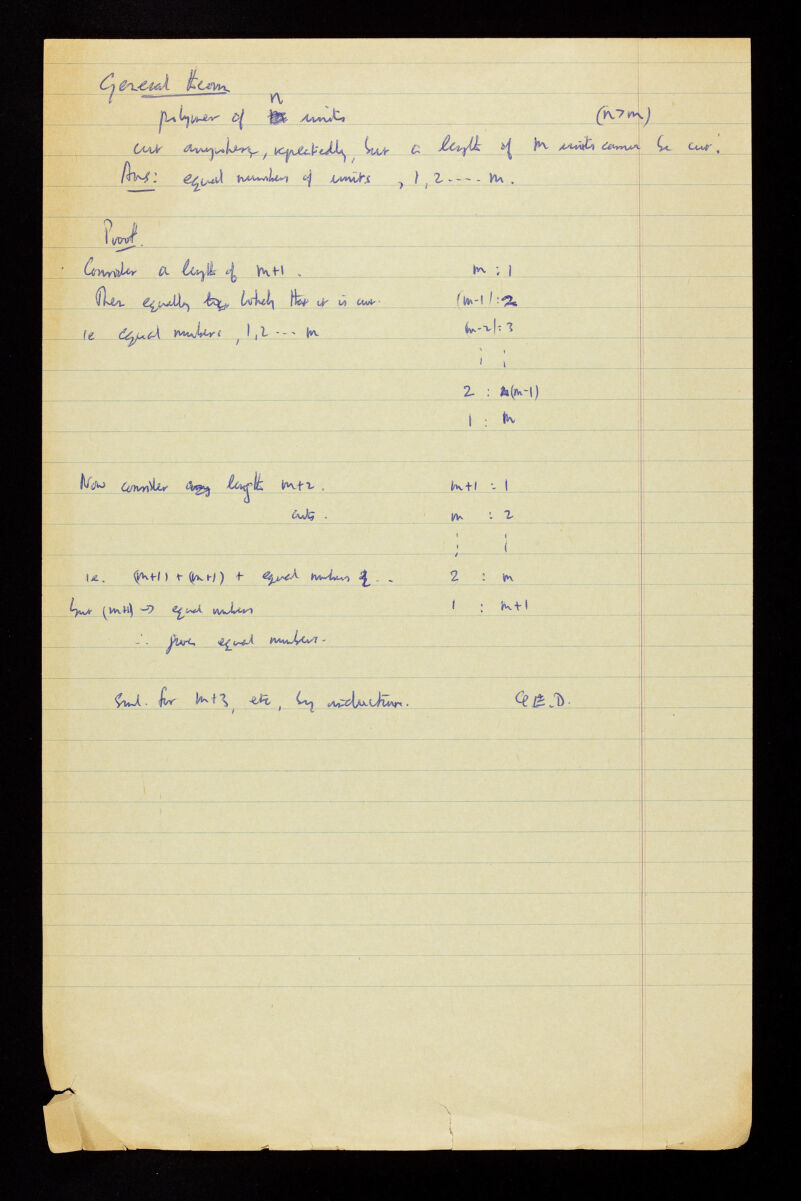 General theorem
polymer of n units (n>m)
cut anywhere, repeatedly, but a length of m units cannot be cut.
Ans: equal numbers of units, 1, 2 ---- m.
Proof.
Consider a length of m+1 . m : 1
Then equally likely that it is cut. (m-1) : 2
ie equal numbers, 1, 2 --- m (m-2) : 3
2 : (m-1)
1 : m
Now consider length m+2 . m+1 : 1
cuts . m : 2
ie. (m+1) + (m+1) + equal numbers - - 2 : m
but (m+1) → equal numbers 1 : m+1
∴ gives equal numbers.
Siml. for m+3, etc, by induction. Q.E.D.